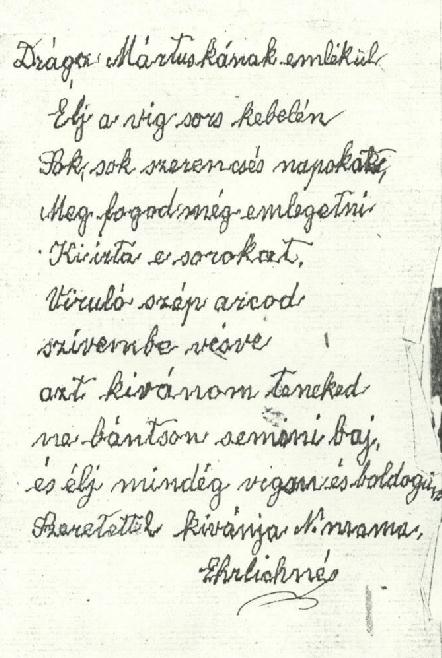 Drága Mártuskának emlékül
Élj a vig sors kebelén
Sok, sok szerencsés napokat,
Meg fogod még emlegetni
Ki irta e sorokat.
Viruló szép arcod
szívembe vésve
azt kivánom teneked
ne bántson semmi baj,
és élj mindég vigan és boldogúl
Szeretettül kivánja
Ehrlichnés